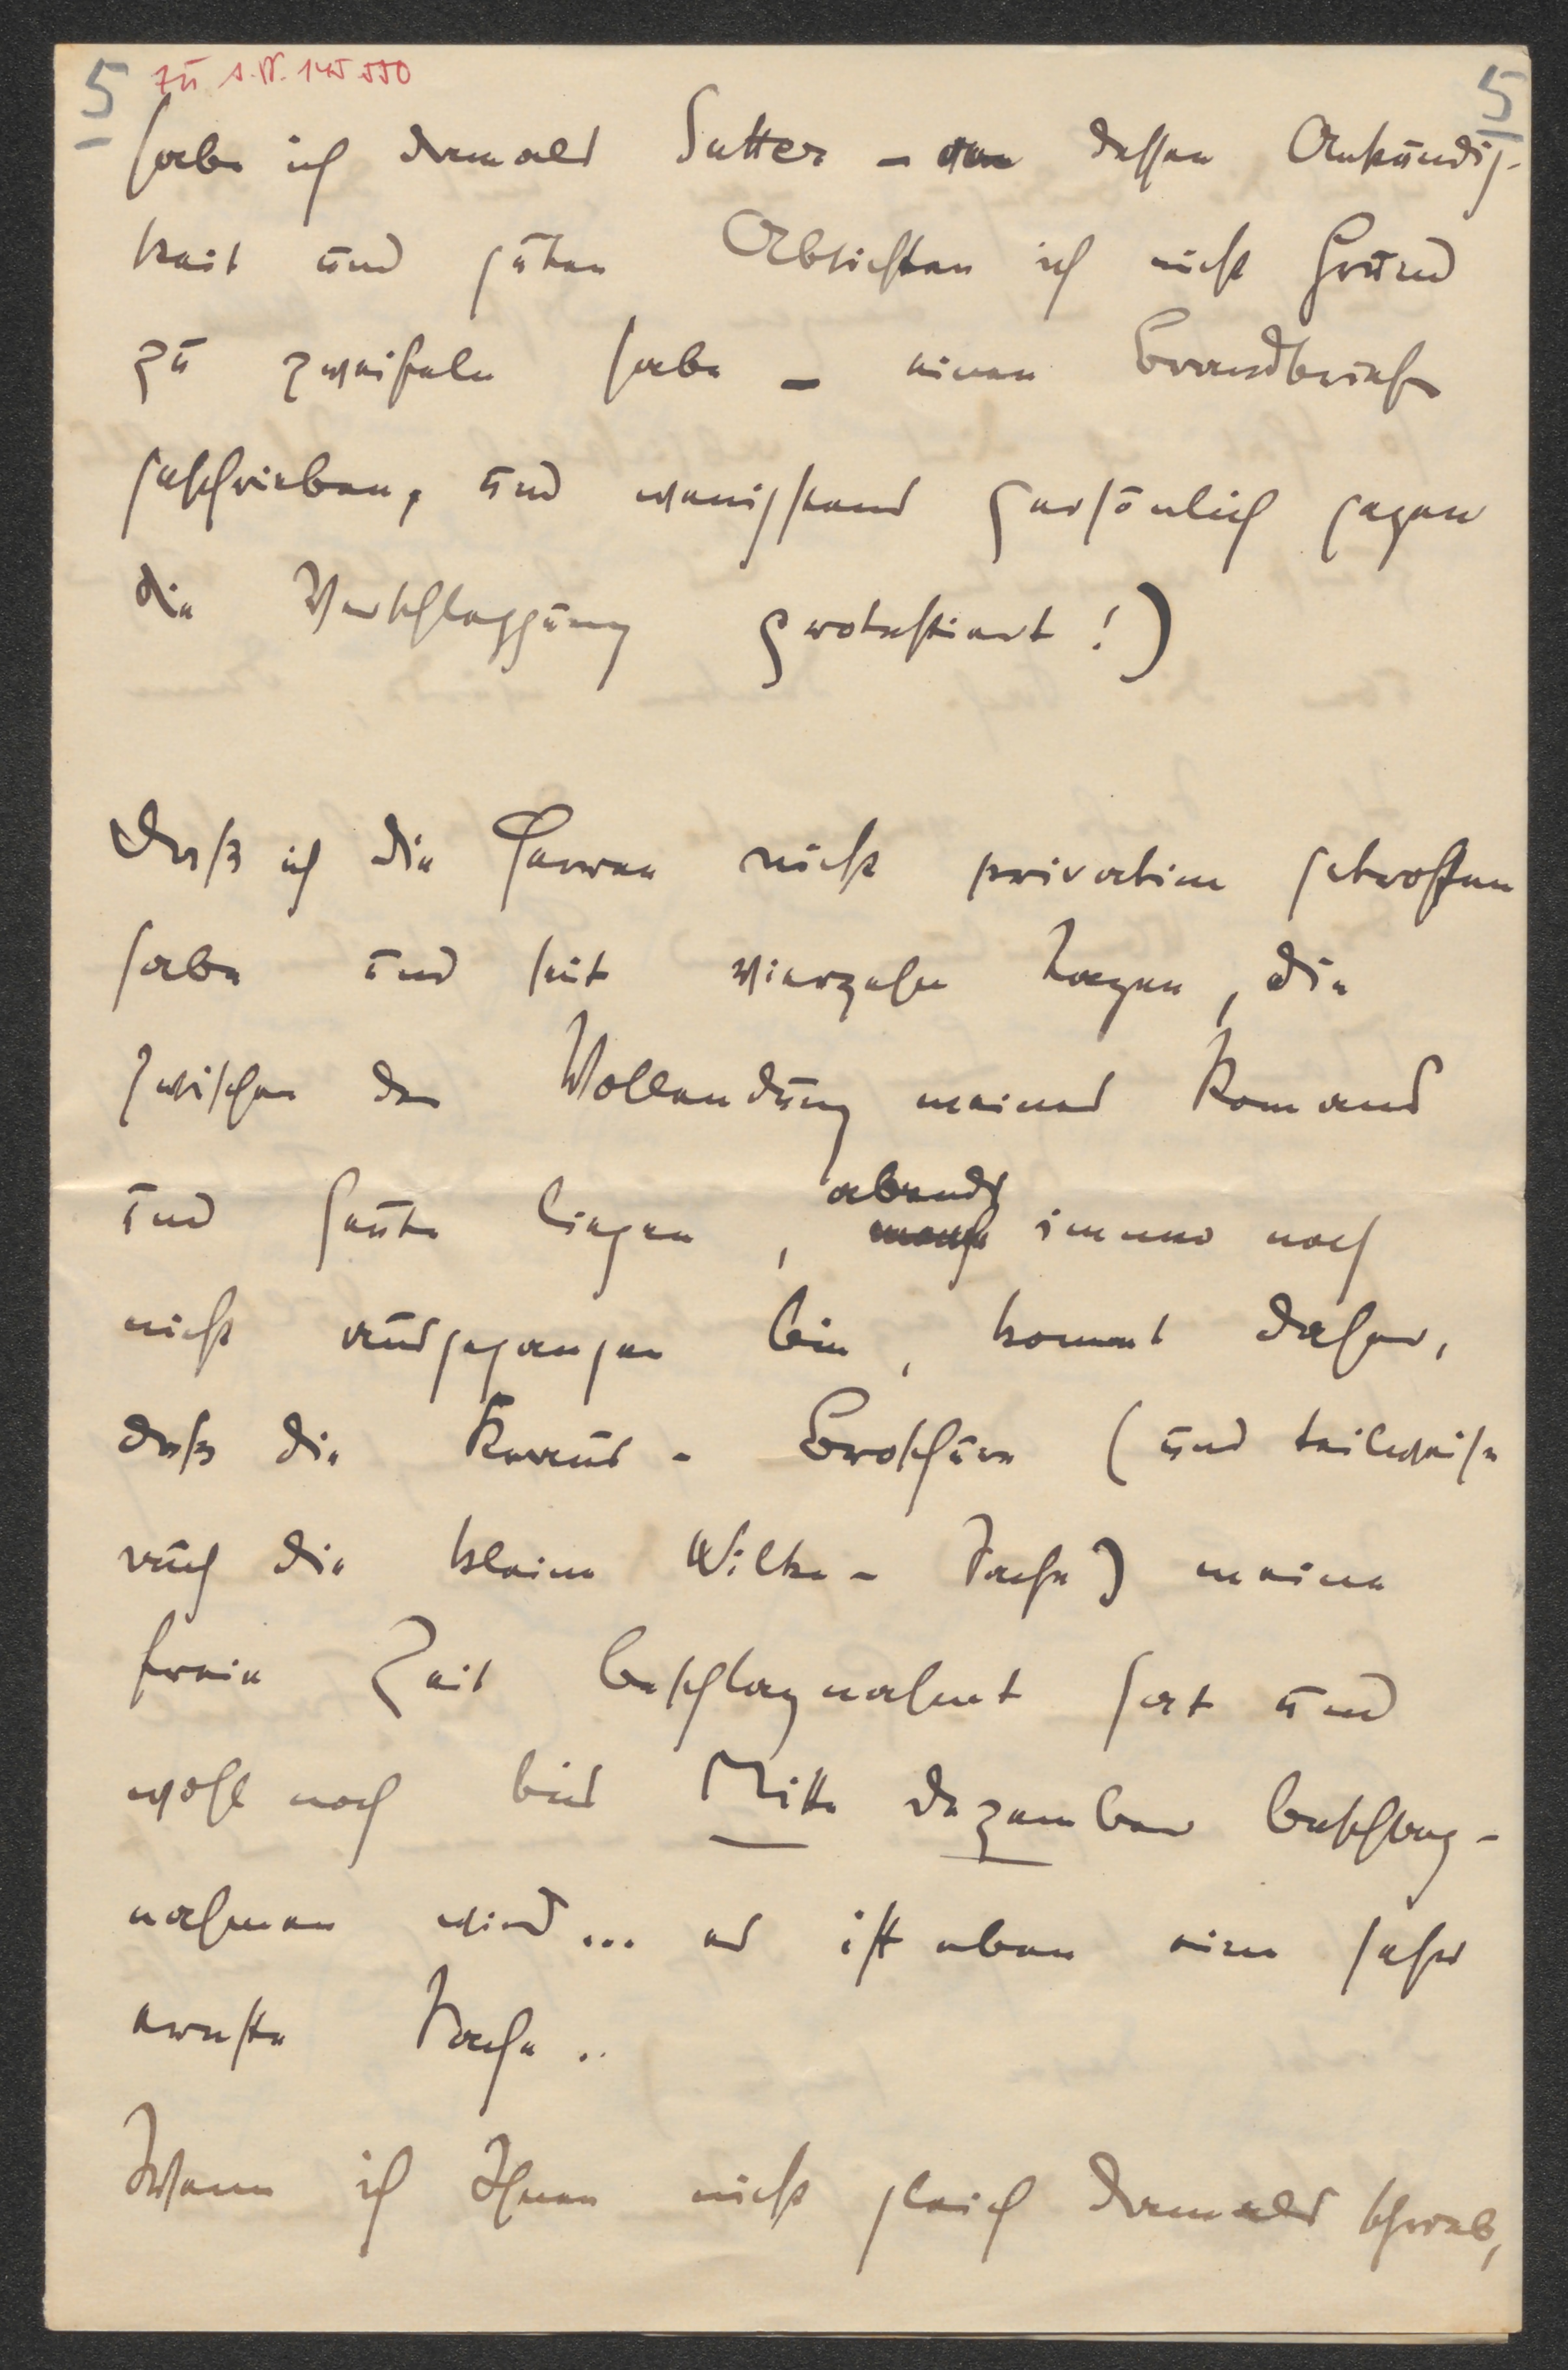 5 zu I.N. 145.550 5
habe ich damals Sutter – an dessen Anständig-
keit und guten Absichten ich nicht Grund
zu zweifeln habe – einen Brandbrief
geschrieben, und wenigstens persönlich gegen
die Verschleppung protestiert!)
Daß ich die Herren nicht privatim getroffen
habe und seit vierzehn Tagen, die
zwischen der Vollendung meines Romans
und heute liegen, abends immer noch
nicht ausgegangen bin, kommt daher,
daß die Kraus-Broschüre (und teilweise
auch die kleine Wilke-Sache) meine
freie Zeit beschlagnahmt hat und
wohl noch bis Mitte Dezember beschlag-
nahmen wird... es ist eben eine sehr
ernste Sache..
Wenn ich Ihnen nicht gleich damals schrieb,